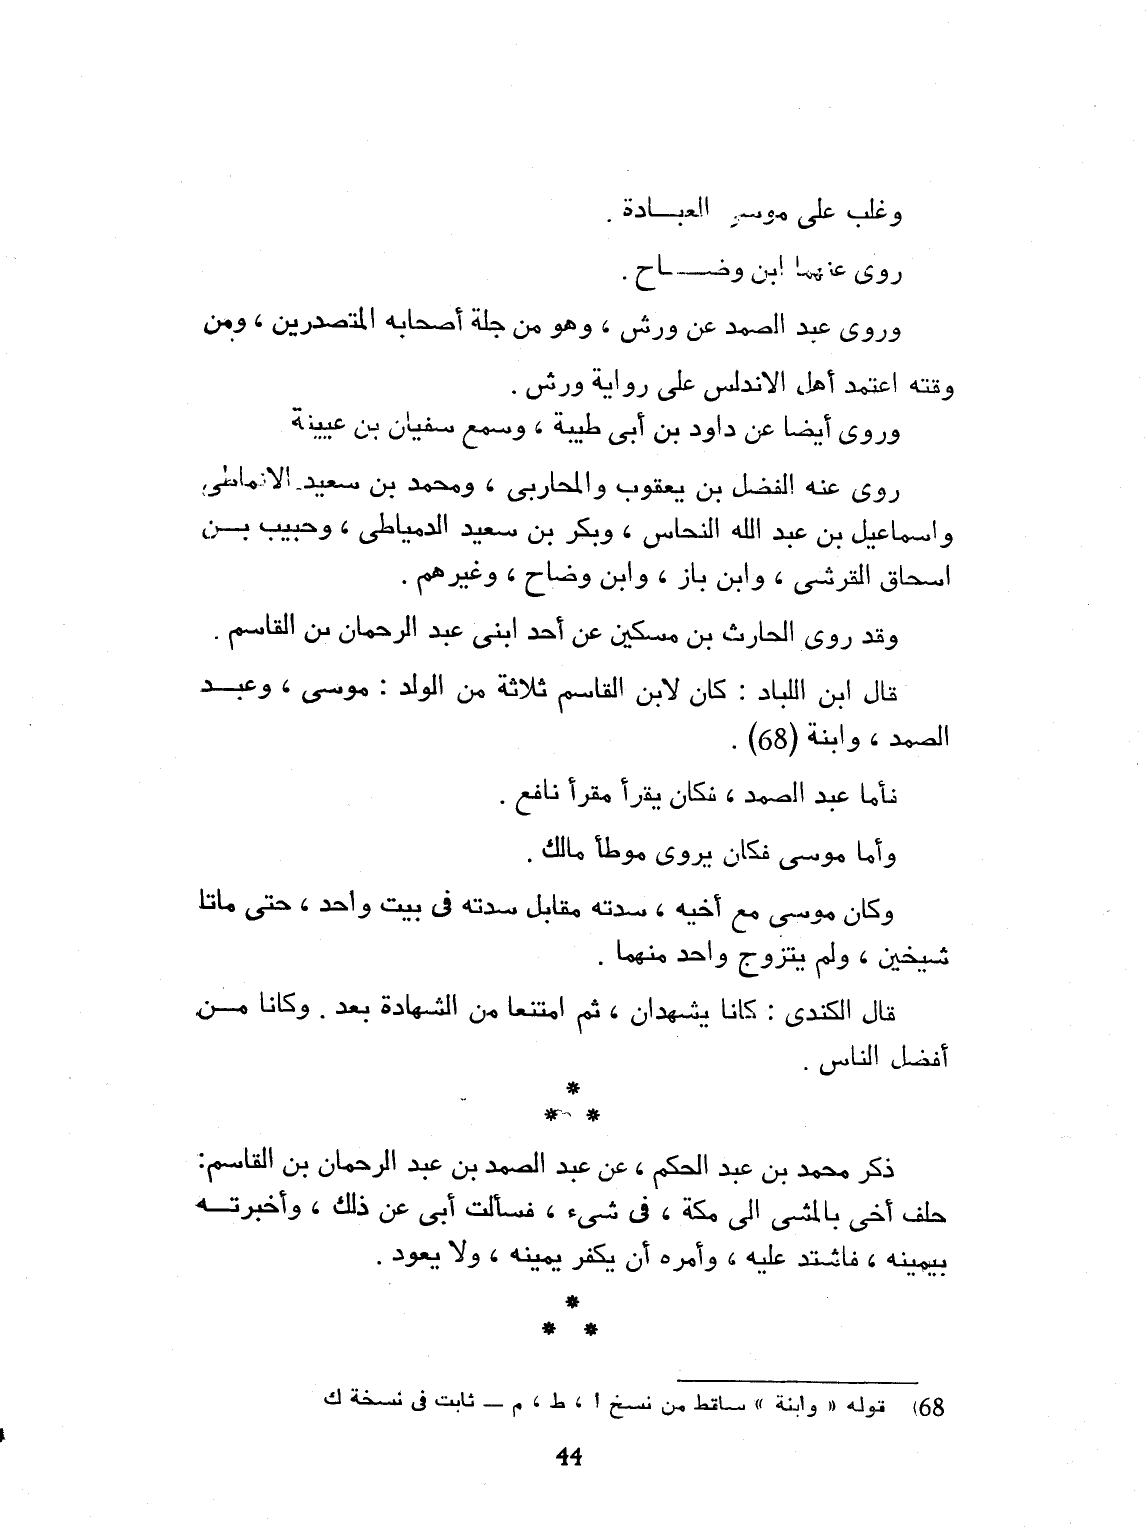 وغلب على موسى العبادة .
روى عنهما ابن وضاح .
وروى عبد الصمد عن ورش ، وهو من جلة أصحابه المتصدرين ، ومن
وقته اعتمد أهل الاندلس على رواية ورش .
وروى أيضا عن داود بن أبى طيبة ، وسمع سفيان بن عيينة
روى عنه الفضل بن يعقوب والمحاربى ، ومحمد بن سعيد الانماطى،
واسماعيل بن عبد الله النحاس ، وبكر بن سعيد الدمياطى ، وحبيب بن
اسحاق القرشى ، وابن باز ، وابن وضاح ، وغيرهم .
وقد روى الحارث بن مسكين عن أحد ابنى عبد الرحمان بن القاسم .
قال ابن اللباد : كان لابن القاسم ثلاثة من الولد : موسى ، وعبد
الصمد ، وابنة (68) .
فأما عبد الصمد ، فكان يقرأ مقرأ نافع .
وأما موسى فكان يروى موطأ مالك .
وكان موسى مع أخيه ، سدته مقابل سدته فى بيت واحد ، حتى ماتا
شيخين ، ولم يتزوج واحد منهما .
قال الكندى : كانا يشهدان ، ثم امتنعا من الشهادة بعد . وكانا من
أفضل الناس .
*
* *
ذكر محمد بن عبد الحكم ، عن عبد الصمد بن عبد الرحمان بن القاسم:
حلف أخى بالمشى الى مكة ، فى شىء ، فسألت أبى عن ذلك ، وأخبرته
بيمينه ، فاشتد عليه ، وأمره أن يكفر يمينه ، ولا يعود .
*
* *
68) قوله « وابنة » ساقط من نسخ ا ، ط ، م — ثابت فى نسخة ك
44